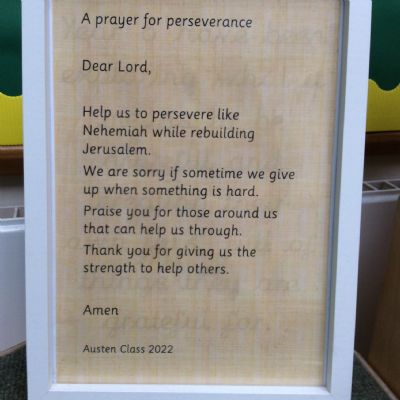 A prayer for perseverance
Dear Lord,
Help us to persevere like
Nehemiah while rebuilding
Jerusalem.
We are sorry if sometime we give
up when something is hard.
Praise you for those around us
that can help us through.
Thank you for giving us the
strength to help others.
Amen
grateful for.
Austen Class 2022